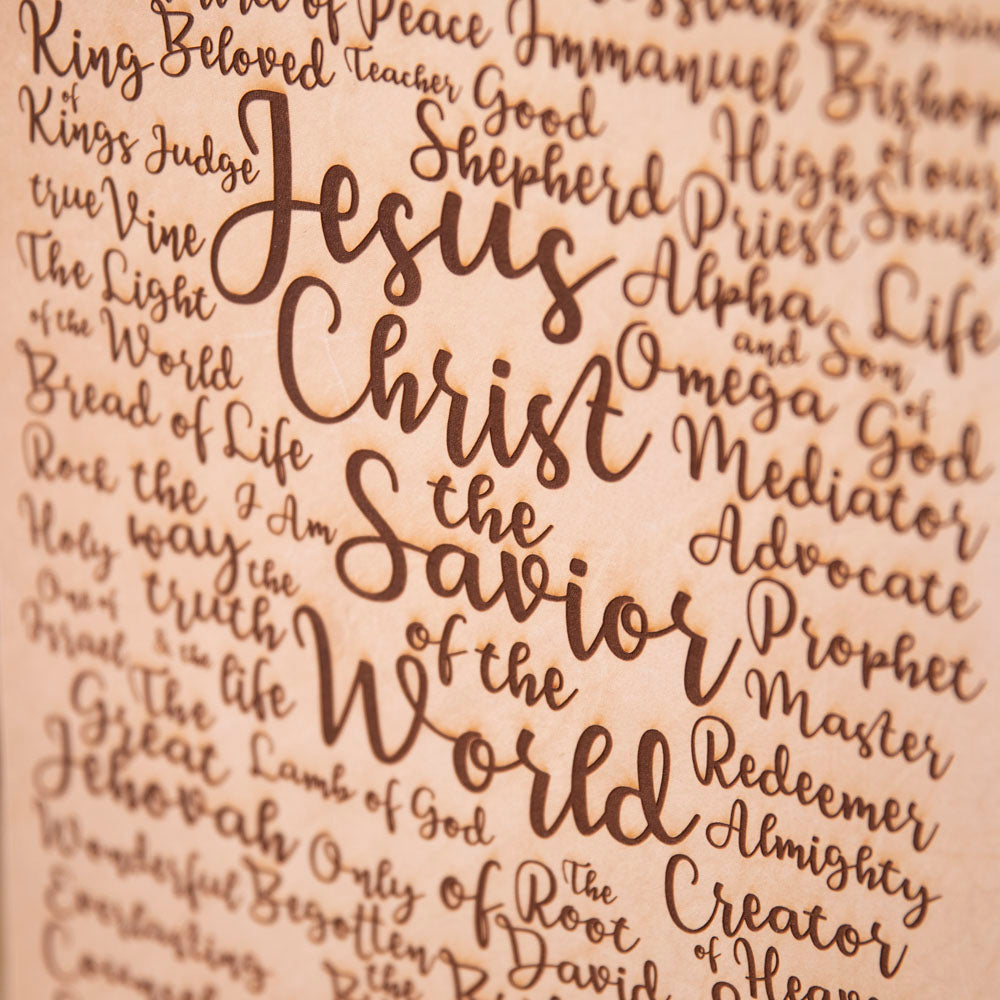 of Peace
King Beloved Teacher Immanuel Bishop
of
Kings Judge Good
Shepherd High of Your
Souls
true Vine Jesus Priest
The Light Alpha Life
of the World Christ and Son
Omega of
Bread of Life God
Rock the I Am the Mediator
Holy way the Savior Advocate
One of truth of the Prophet
Israel & the life World Master
The
Great Lamb of God Redeemer
Jehovah Almighty
Wonderful Only of The Creator
Everlasting Begotten Root of
the David